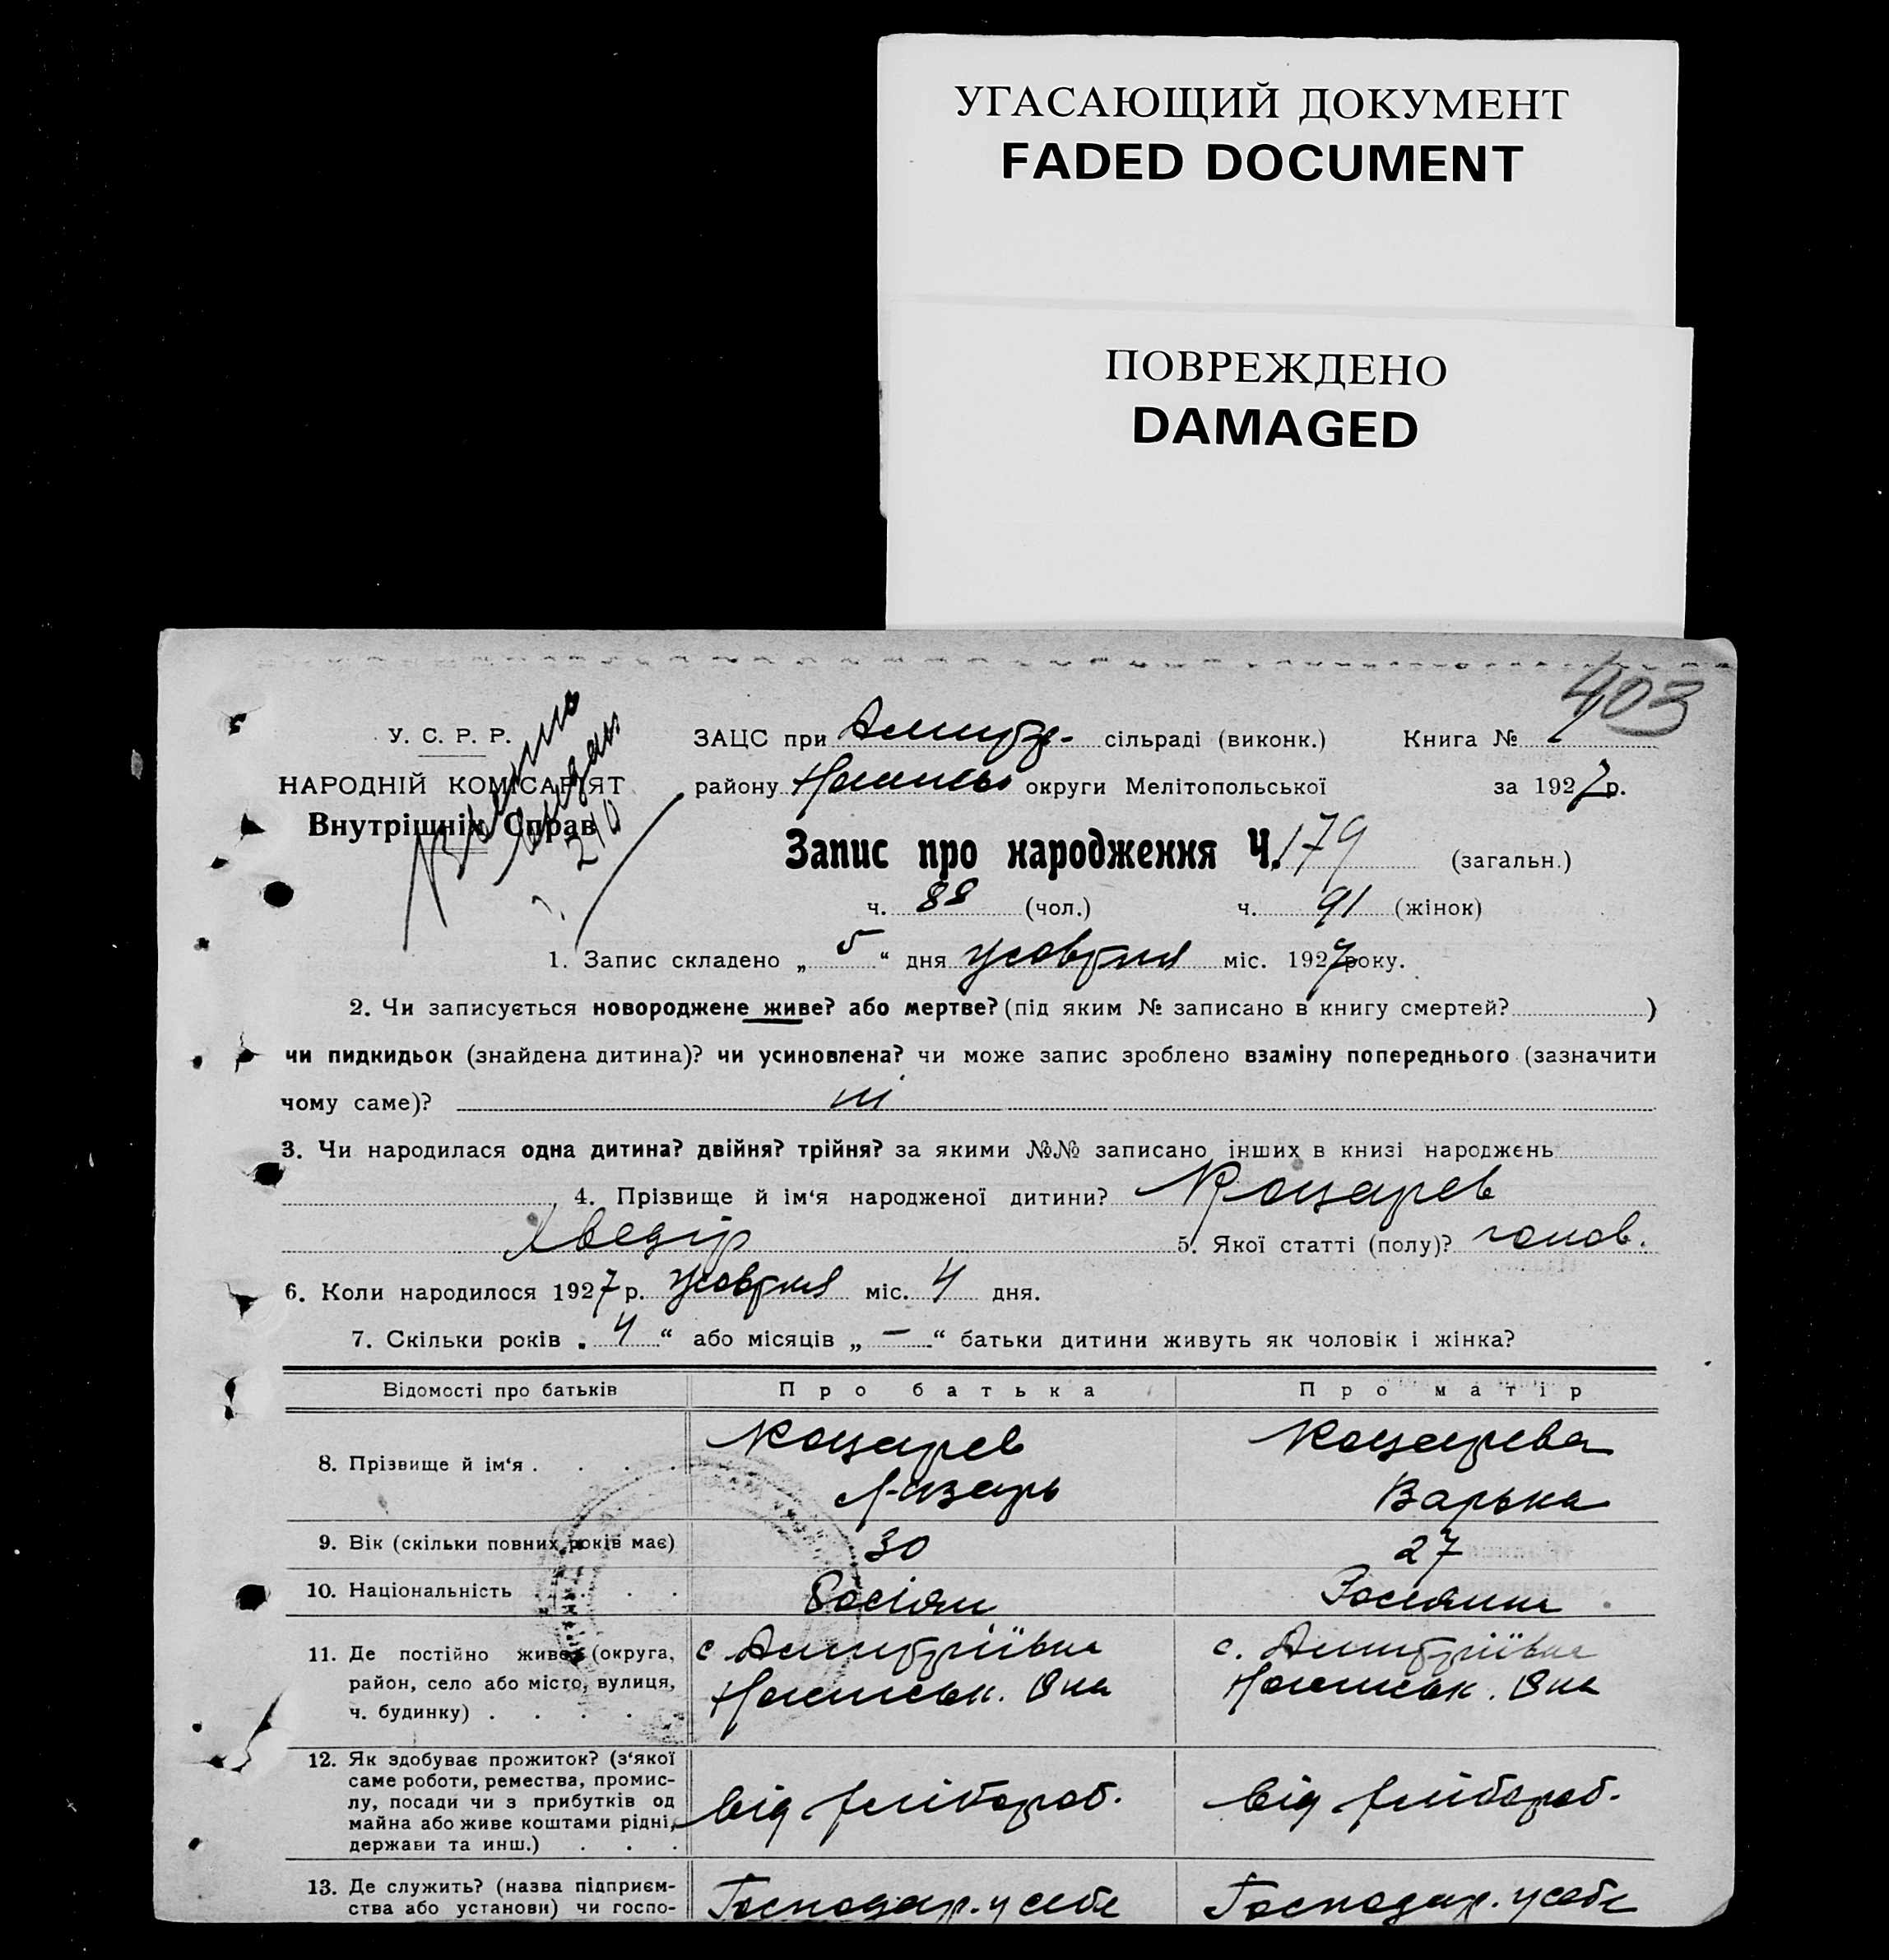 УГАСАЮЩИЙ ДОКУМЕНТ
FADED DOCUMENT
ПОВРЕЖДЕНО
DAMAGED
403
У. С. Р. Р.
НАРОДНІЙ КОМІСАРІЯТ
Внутрішніх Справ
ЗАЦС при Дмитр- сільраді (виконк.) Книга №
району округи Мелітопольської за 1927 р.
Запис про народження Ч. 179 (загальн.)
ч. 88 (чол.) ч. 91 (жінок)
1. Запис складено „ 5 “ дня жовтня міс. 1927 року.
2. Чи записується новороджене живе? або мертве? (під яким № записано в книгу смертей? )
чи пидкидьок (знайдена дитина)? чи усиновлена? чи може запис зроблено взаміну попереднього (зазначити
чому саме)? ні
3. Чи народилася одна дитина? двійня? трійня? за якими №№ записано інших в книзі народжень
4. Прізвище й ім‘я народженої дитини? Коцарев
Хведір 5. Якої статті (полу)? голов.
6. Коли народилося 1927 р. жовтня міс. 4 дня.
7. Скільки років „ 4 “ або місяців „ — “ батьки дитини живуть як чоловік і жінка?
Відомості про батьків Про батька Про матір
8. Прізвище й ім‘я . . . . Коцарев Коцарева
Лазарь Варька
9. Вік (скільки повних років має) 30 27
10. Національність . . . . Росіян Росіянка
11. Де постійно живе (округа, с Дмитріївка с. Дмитріївка
район, село або місто, вулиця,
ч. будинку) . . . . .
12. Як здобуває прожиток? (з‘якої
саме роботи, ремества, промис-
лу, посади чи з прибутків од від хлібороб. від хлібороб.
майна або живе коштами рідні,
держави та инш.) . . .
13. Де служить? (назва підприєм- Господар. у себе Господар. у себе
ства або установи) чи госпо-